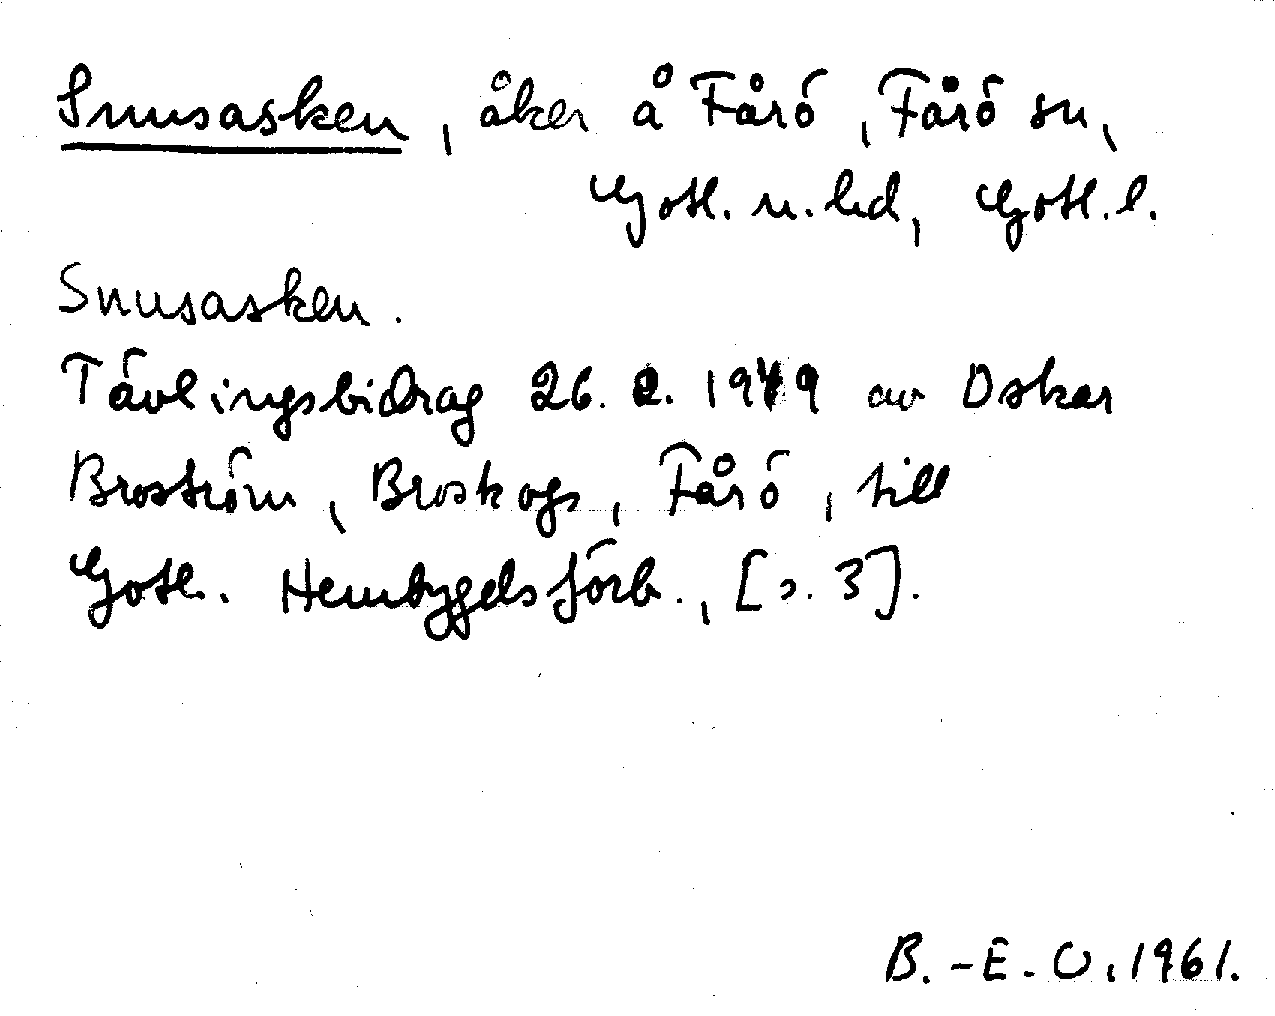 Snusasken, åker å Fårö, Fårö sn,
Gotl. n. hd, Gotl. l.
Snusasken.
Tävlingsbidrag 26. 2. 1949 av Oskar
Broström, Broskogs, Fårö, till
Gotl. Hembygdsförb., [s. 3].
B.-E. O, 1961.